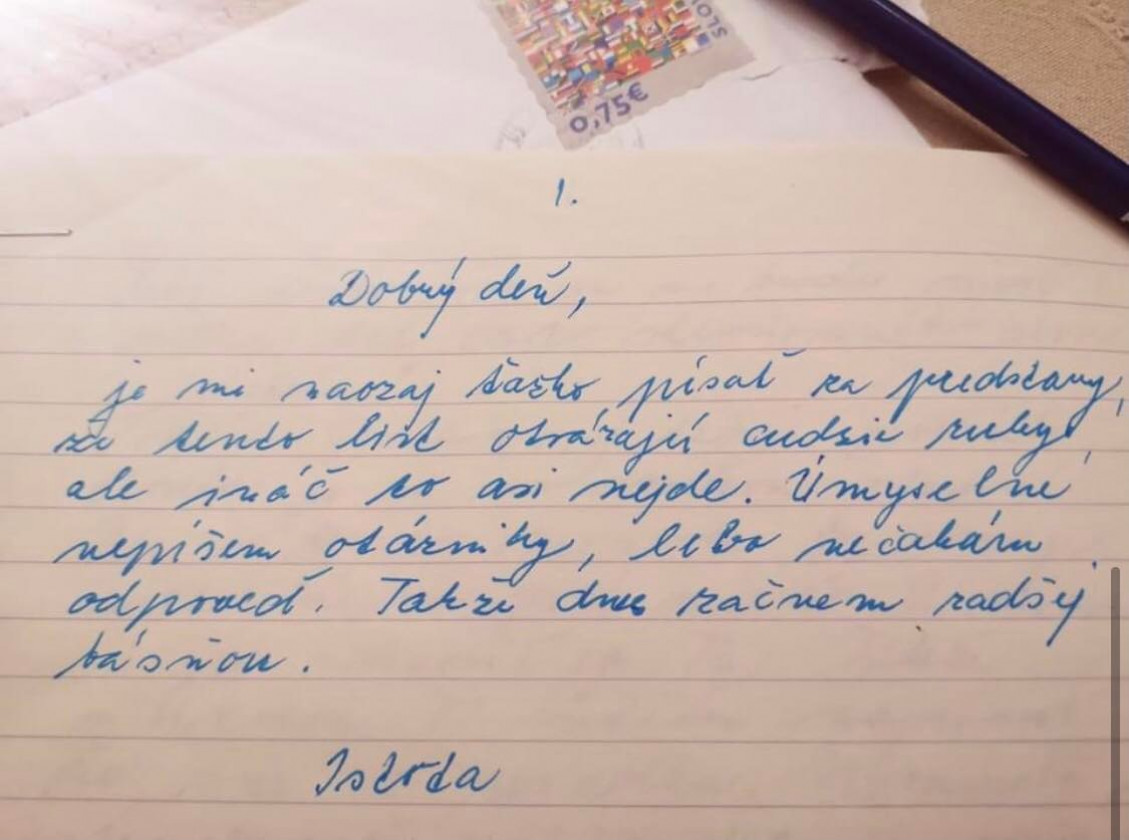 SLO
0,75€
1.
Dobrý deň,
je mi naozaj ťažko písať za predstavy,
že tento list otvárajú cudzie ruky,
ale ináč to asi nejde. Úmyselne
nepíšem otázniky, lebo nečakám
odpoveď. Takže dnes začnem radšej
básňou.
Istota